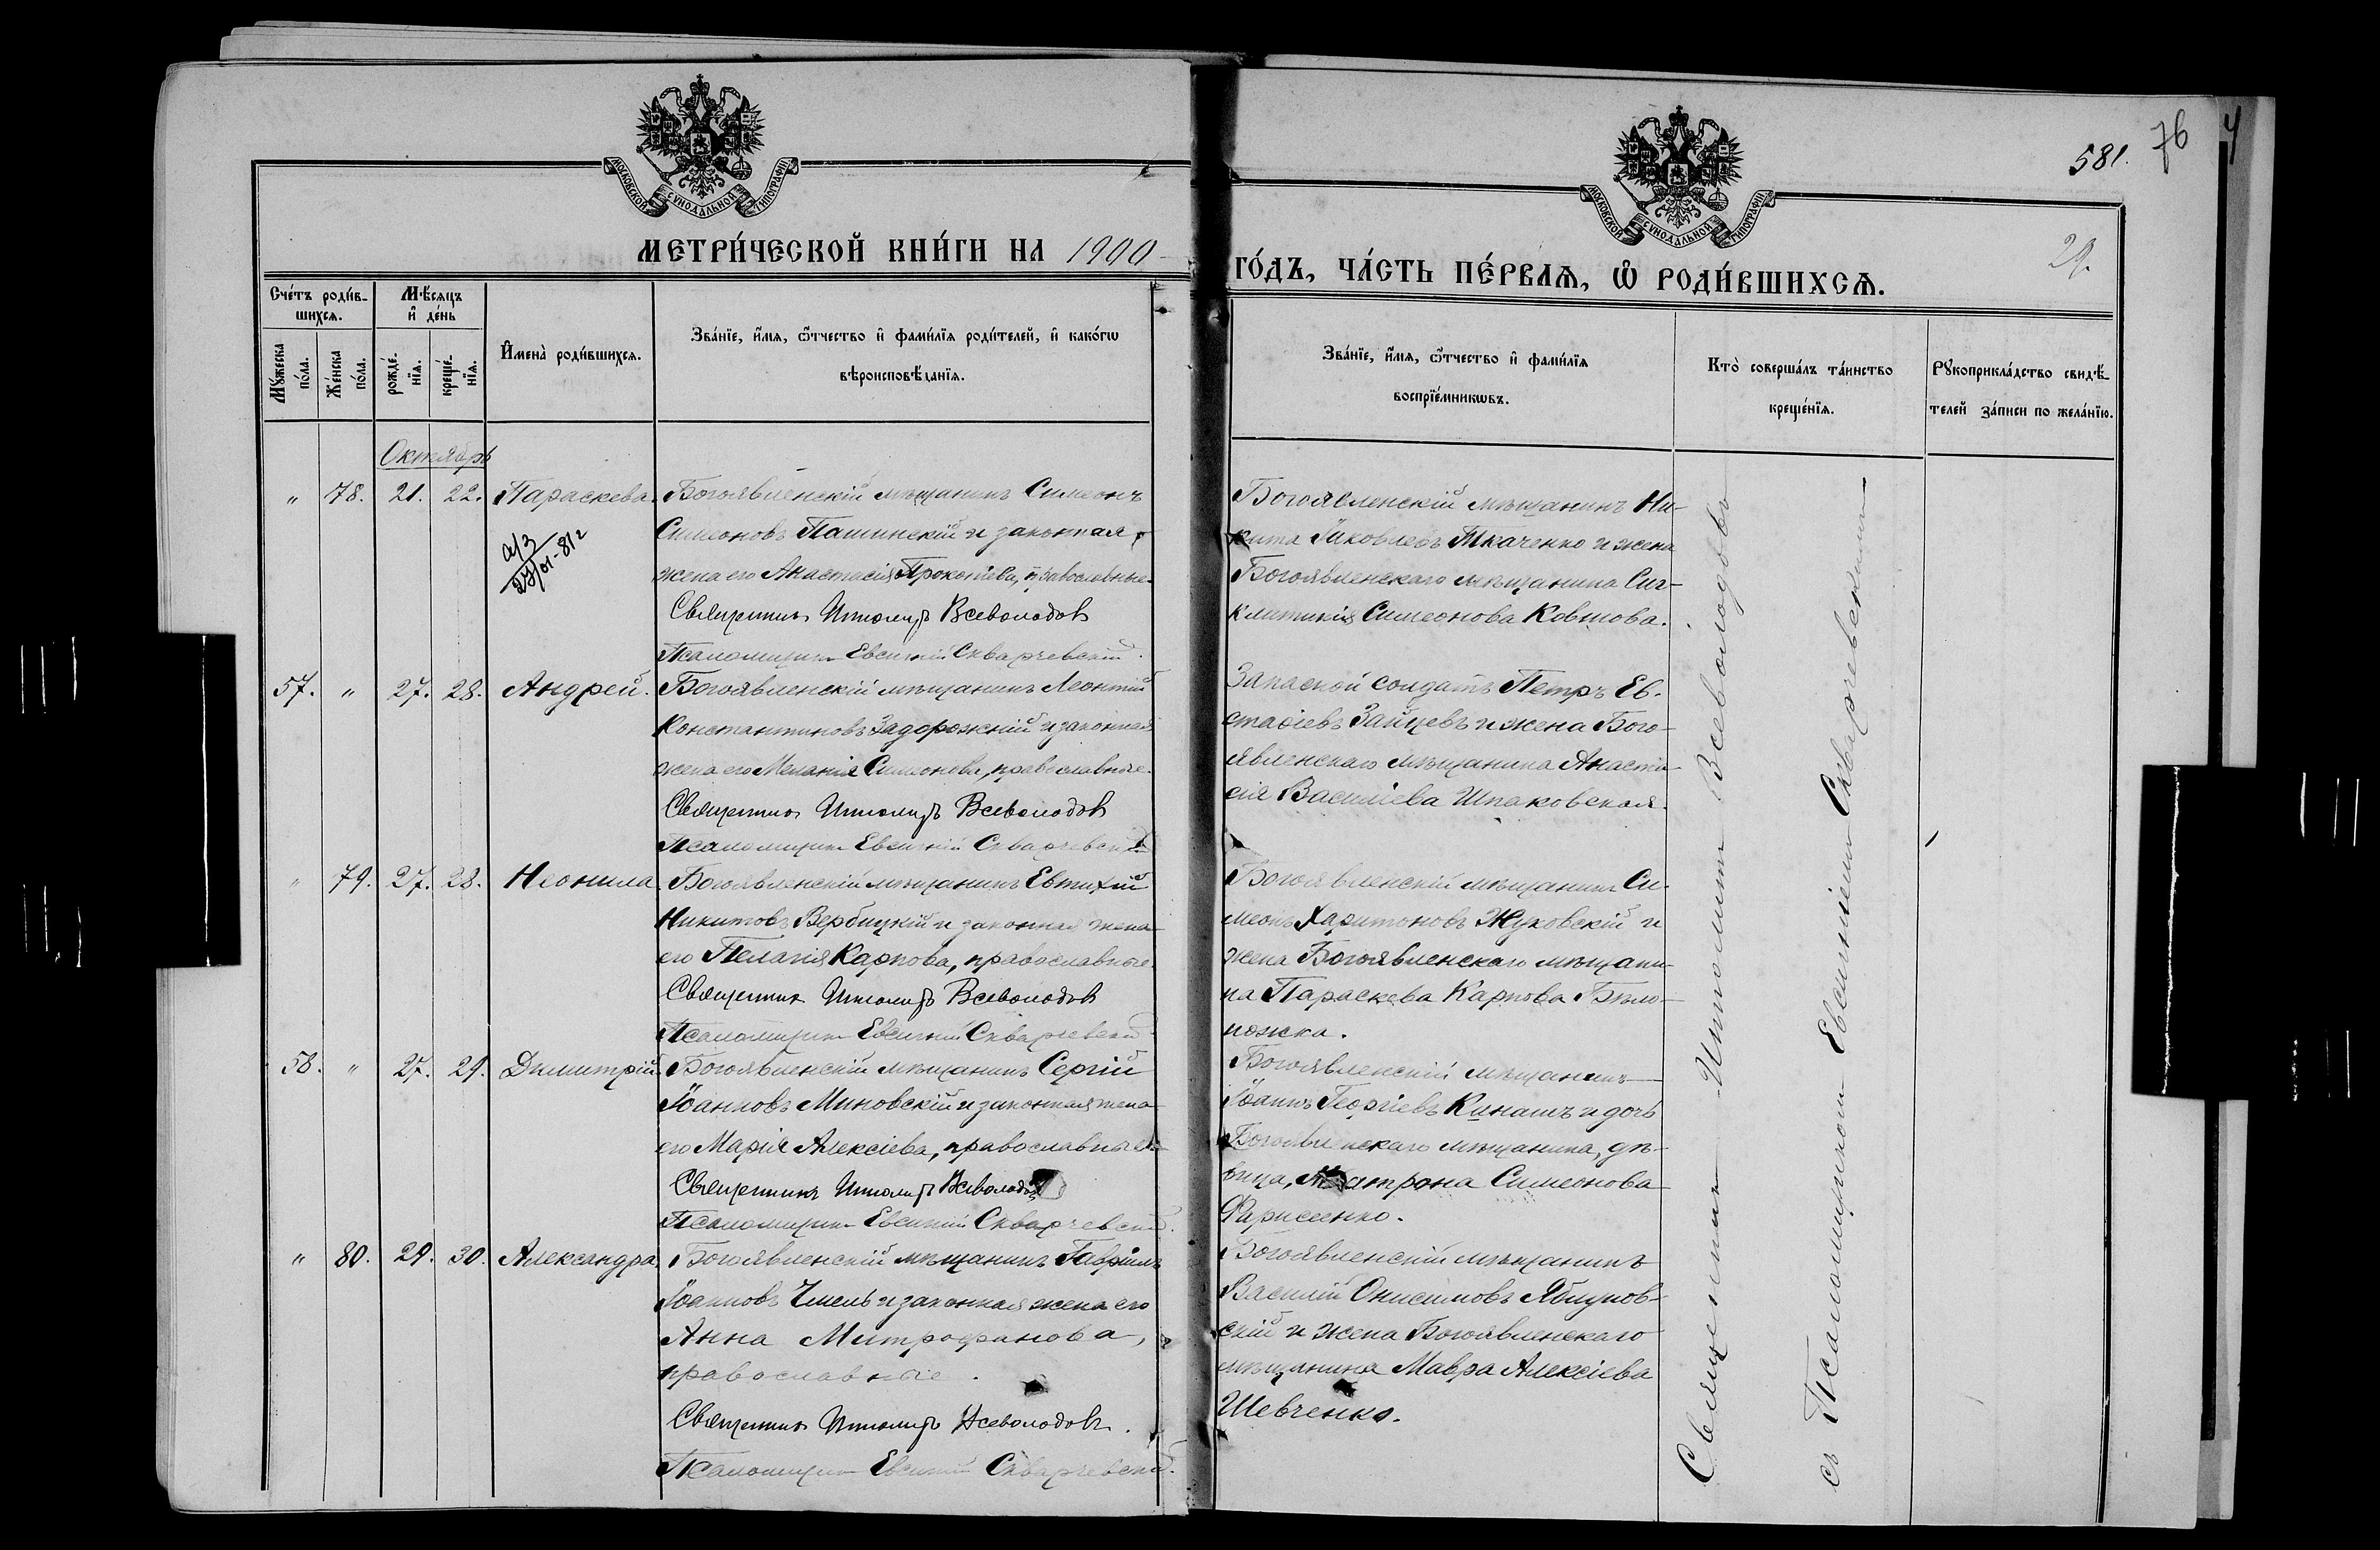 76
4
581.
29.
МОСКОВСКОЙ СѴНОДАЛЬНОЙ ТИПОГРАФІИ
МОСКОВСКОЙ СѴНОДАЛЬНОЙ ТИПОГРАФІИ
МЕТРИ́ЧЕСКОЙ КНИ́ГИ НА 1900
ГО́ДЪ, ЧА́СТЬ ПЕ́РВАѦ, Ѽ РОДИ́ВШИХСѦ.
Сче́тъ роди́в-
шихсѧ.
Мꙋ́жеска
по́ла.
Же́нска
по́ла.
Мѣ́сѧцъ
и҆ де́нь
рожде́-
нїѧ.
креще́-
нїѧ.
И҆мена̀ роди́вшихсѧ.
Зва́нїе, и҆́мѧ, ѻ҆́тчество и҆ фами́лїѧ роди́телей, и҆ како́гѡ
вѣроисповѣ́данїѧ.
Зва́нїе, и҆́мѧ, ѻ҆́тчество и҆ фами́лїѧ
воспрїе́мникѡвъ.
Кто̀ соверша́лъ та́инство
креще́нїѧ.
Рꙋкоприкла́дство свидѣ́-
телей за́писи по жела́нїю.
Октябрь
" 78. 21. 22. Параскева. Богоявленскій мѣщанинъ Симеонъ
Симеоновъ Пашинскій и законная
жена его Анастасія Прокопіева, православные.
Священникъ Ипполитъ Всеволодовъ
Псаломщикъ Евсигній Скварчевскій.
а/з
Богоявленскій мѣщанинъ Ни-
кита Іаковлевъ Ткаченко и жена
Богоявленскаго мѣщанина Син-
клитикія Симеонова Ковшова.
57. " 27. 28. Андрей. Богоявленскій мѣщанинъ Леонтій
Константиновъ Задорожній и законная
жена его Меланія Симеонова, православные.
Священникъ Ипполитъ Всеволодовъ
Псаломщикъ Евсигній Скварчевскій
Запасной солдатъ Петръ Ев-
стафіевъ Зайцевъ и жена Бого-
явленскаго мѣщанина Анаста-
сія Василіева Шпаковская.
" 79. 27. 28. Неонила Богоявленскій мѣщанинъ Евтихій
Никитовъ Вербицкій и законная жена
его Пелагія Карпова, православные.
Священникъ Ипполитъ Всеволодовъ
Псаломщикъ Евсигній Скварчевскій
Богоявленскій мѣщанинъ Си-
меонъ Харитоновъ Жуковскій и
жена Богоявленскаго мѣщани-
на Параскева Карпова Бѣло-
ножка.
58. " 27. 29. Димитрій. Богоявленскій мѣщанинъ Сергій
Іоанновъ Миновскій и законная жена
его Марія Алексіева, православные.
Священникъ Ипполитъ Всеволодовъ
Псаломщикъ Евсигній Скварчевскій.
Богоявленскій мѣщанинъ
Іоаннъ Георгіевъ Кинашъ и дочь
Богоявленскаго мѣщанина, дѣ-
вица, Матрона Симеонова
Фарисеенко.
" 80. 29. 30. Александра. Богоявленскій мѣщанинъ Гавріилъ
Іоанновъ Чмель и законная жена его
Анна Митрофанова,
православные.
Священникъ Ипполитъ Всеволодовъ.
Псаломщикъ Евсигній Скварчевскій.
Богоявленскій мѣщанинъ
Василій Онисимовъ Яблунов-
скій и жена Богоявленскаго
мѣщанина Мавра Алексіева
Шевченко.
Священникъ Ипполитъ Всеволодовъ
съ Псаломщикомъ Евсигніемъ Скварчевскимъ